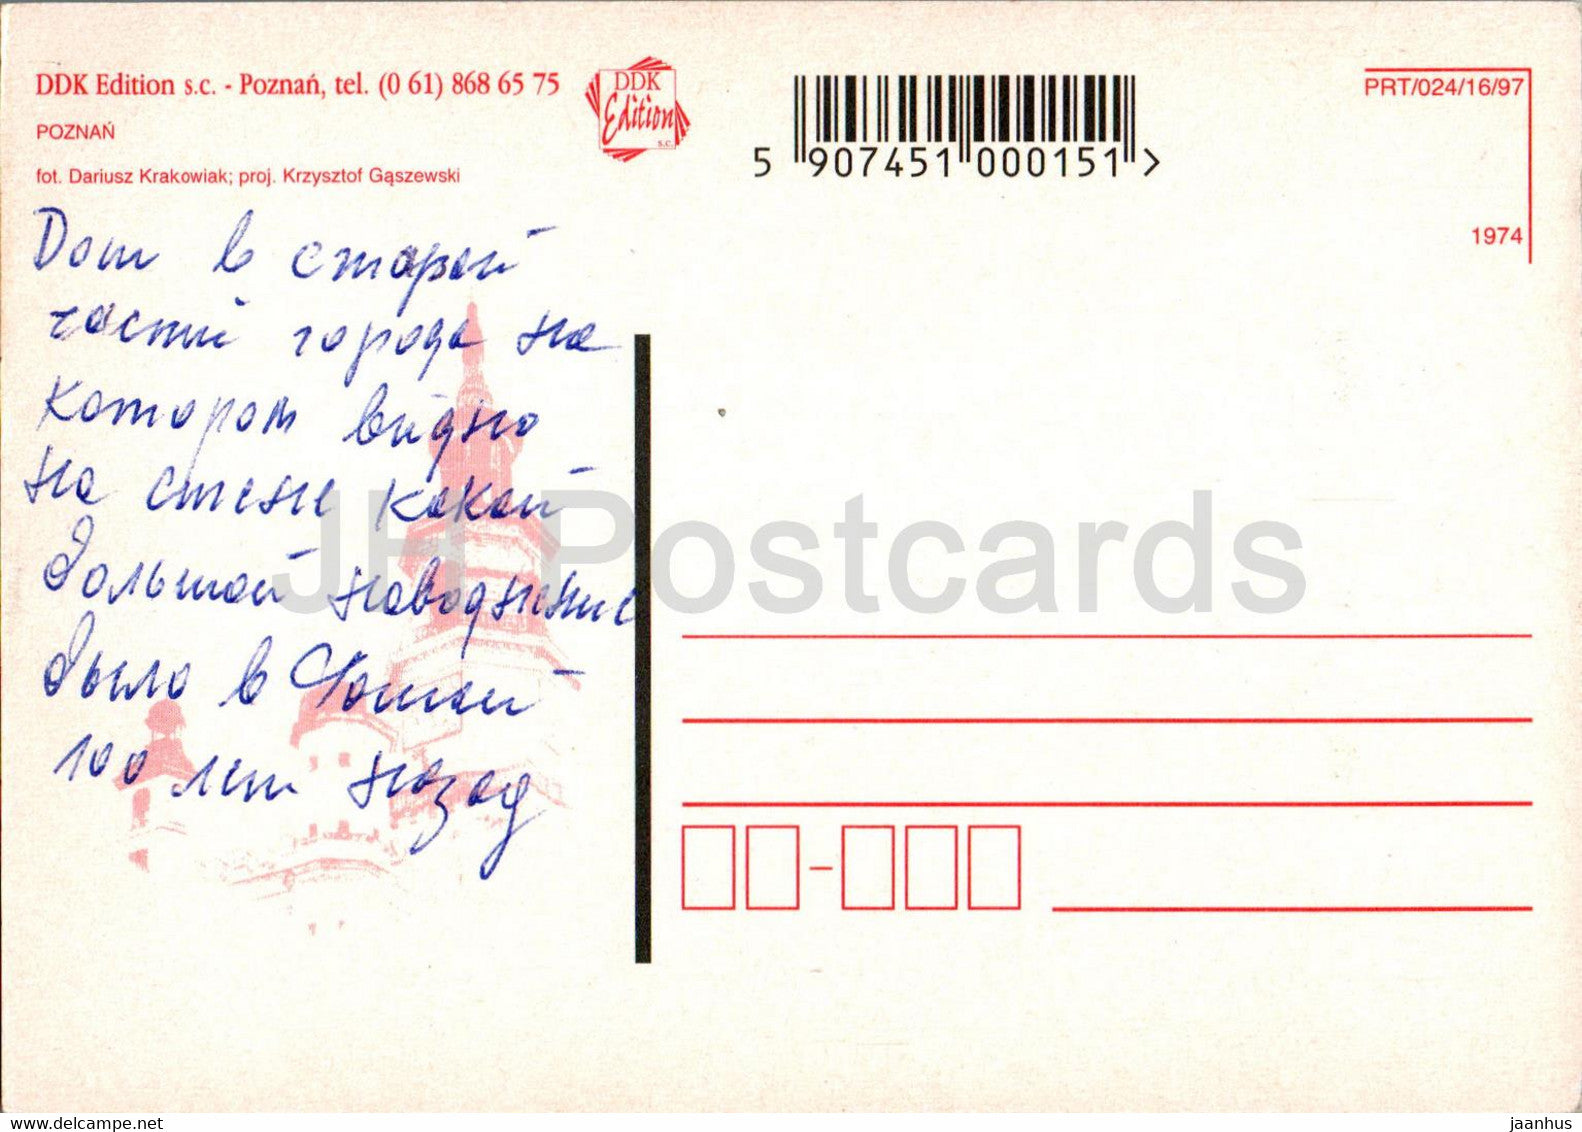 DDK Edition s.c. - Poznań, tel. (0 61) 868 65 75
DDK
Edition
s.c.
POZNAŃ
fot. Dariusz Krakowiak; proj. Krzysztof Gąszewski
5 907451 000151 >
PRT/024/16/97
1974
Дом в старой
части города на
котором видно
на стене какой
большой наводнение
было в
100 лет назад
JH Postcards
https://jhpostcards.com
jaanhus